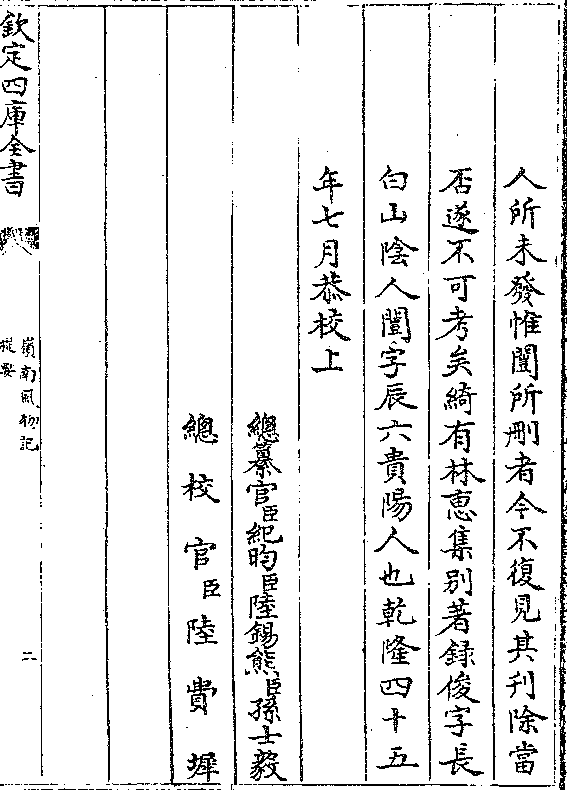 人所未發惟闓所刪者今不復見其刋除當
否遂不可考矣綺有林蕙集别著録俊字長
白山陰人闓字辰六貴陽人也乾隆四十五
年七月恭校上
總纂官臣紀昀臣陸錫熊臣孫士毅
總校官臣陸費墀
欽定四庫全書
嶺南風物記
提要
二